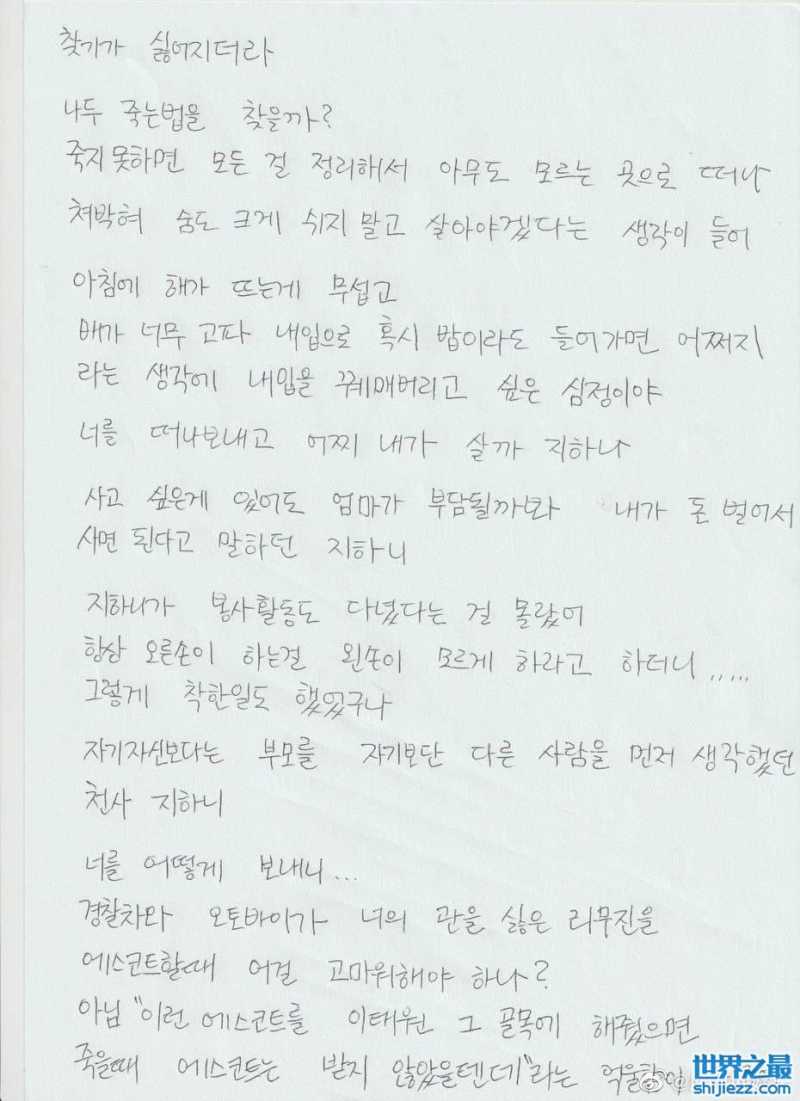 찾기가 싫어지더라
나두 죽는법을 찾을까?
죽지못하면 모든 걸 정리해서 아무도 모르는 곳으로 떠나
쳐박혀 숨도 크게 쉬지 말고 살아야겠다는 생각이 들어
아침에 해가 뜨는게 무섭고
배가 너무 고파 내입으로 혹시 밥이라도 들어가면 어쩌지
라는 생각에 내입을 꿰매버리고 싶은 심정이야
너를 떠나보내고 어찌 내가 살까 지하니
사고 싶은게 있어도 엄마가 부담될까봐 내가 돈 벌어서
사면 된다고 말하던 지하니
지하니가 봉사활동도 다녔다는 걸 몰랐어
항상 오른손이 하는걸 왼손이 모르게 하라고 하더니.....
그렇게 착한일도 했었구나
자기자신보다는 부모를 자기보단 다른 사람을 먼저 생각했던
천사 지하니
너를 어떻게 보내니...
경찰차와 오토바이가 너의 관을 실은 리무진을
에스코트할때 이걸 고마워해야 하나?
아님 "이런 에스코트를 이태원 그 골목에 해줬으면
죽을때 에스코트는 받지 않았을텐데"라는 억울함이
世界之最
shijiezz.com